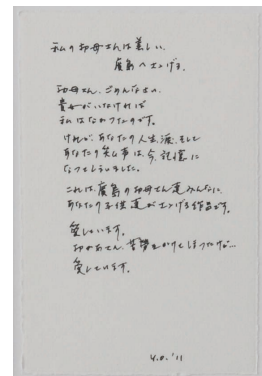 私のお母さんは美しい、
廣島へ上げる、
お母さん、ごめんなさい、
貴女がいなければ
私はなかったのです。
けれど、あなたの人生、涙、そして
あなたの笑い声は、今、記憶に
なってしまいました。
これは、廣島のお母さん達みんなに、
あなたの子供達が上げる作品です。
愛しています。
お母さん、苦労をかけてしまったけど...
愛しています。
Y.O. '11